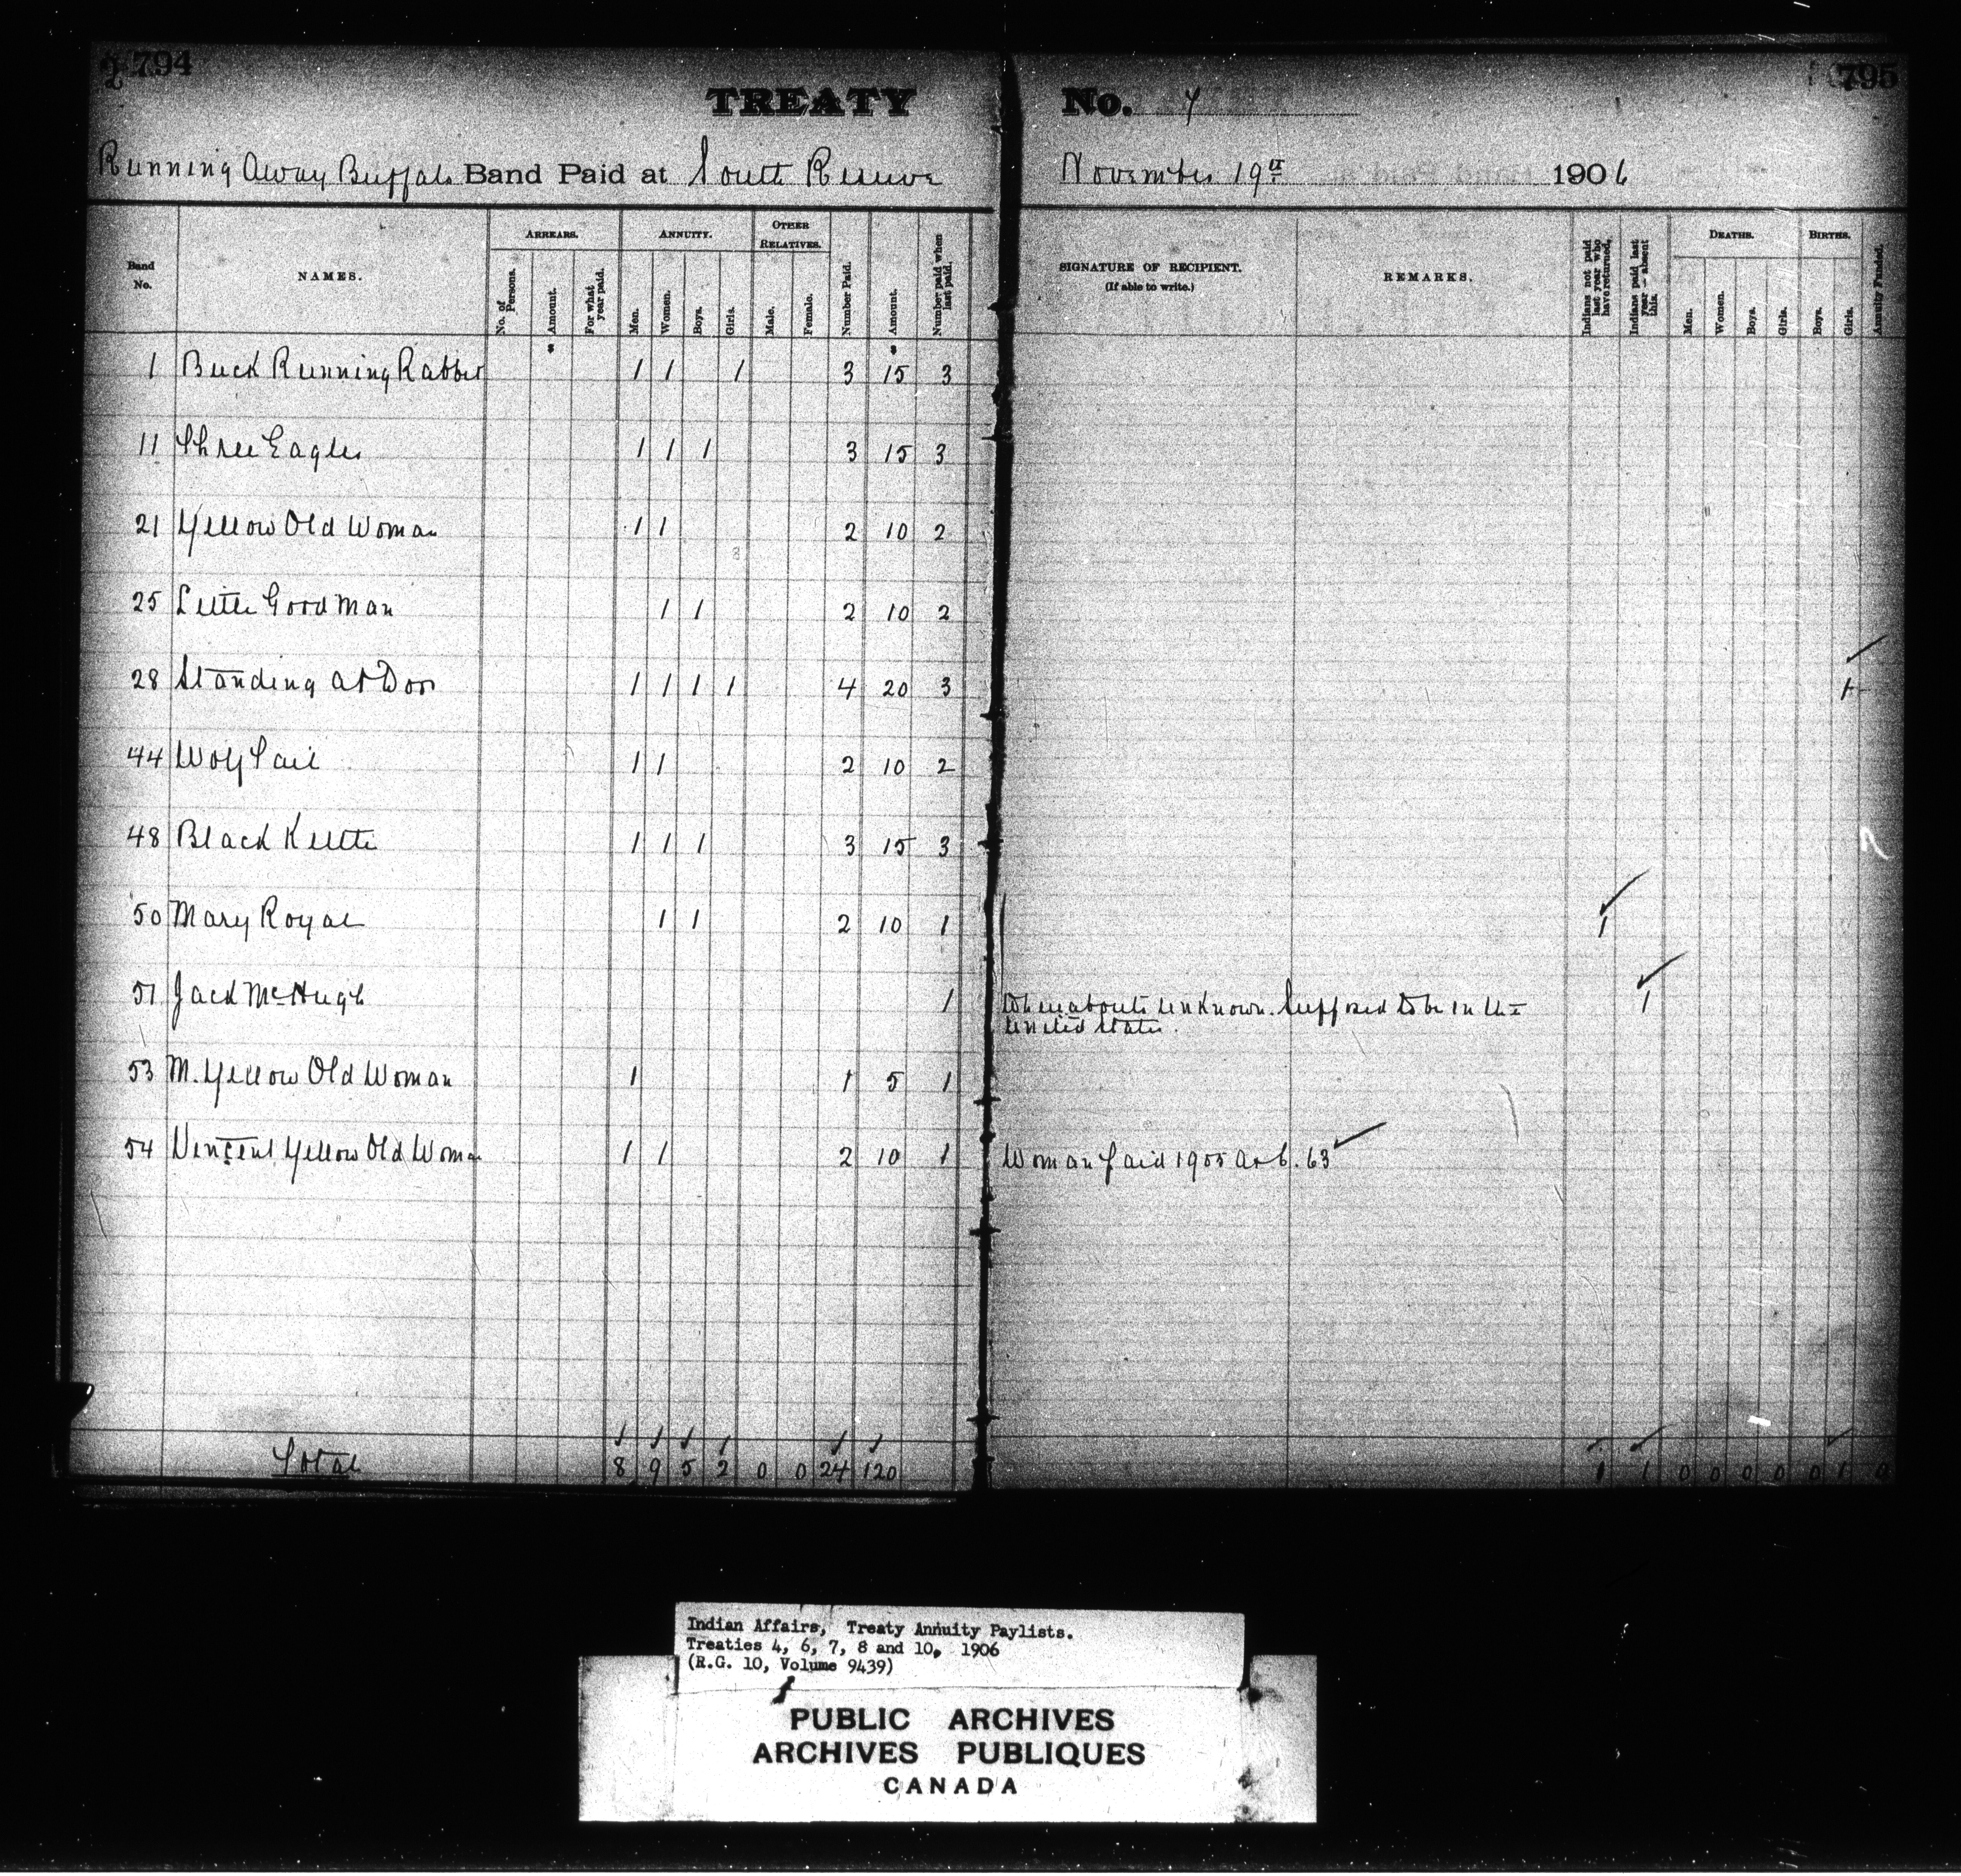 794
795
TREATY No. 7
Running Away Buffalo Band Paid at South Reserve November 19th 1906
Band No.
NAMES.
ARREARS.
No. of Persons.
Amount.
For what year paid.
ANNUITY.
Men.
Women.
Boys.
Girls.
OTHER RELATIVES.
Male.
Female.
Number Paid.
Amount.
Number paid when last paid.
SIGNATURE OF RECIPIENT.
(If able to write.)
REMARKS.
Indians not paid last year who have returned.
Indians paid last year – absent this.
DEATHS.
Men.
Women.
Boys.
Girls.
BIRTHS.
Boys.
Girls.
Annuity Funded.
1 Buck Running Rabbit 1 1 1 3 15 3
11 Three Eagles 1 1 1 3 15 3
21 Yellow Old Woman 1 1 2 10 2
25 Little Good Man 1 1 2 10 2
28 Standing at Door 1 1 1 1 4 20 3 1
44 Wolf Tail 1 1 2 10 2
48 Black Kettle 1 1 1 3 15 3
50 Mary Royal 1 1 2 10 1 1
51 Jack McHugh 1 Whereabouts unknown. Supposed to be in the 1
United States.
53 M. Yellow Old Woman 1 1 5 1
54 Vincent Yellow Old Woman 1 1 2 10 1 Woman paid 1905 at 6. 63
Total 8 9 5 2 0 0 24 120 1 1 0 0 0 0 0 1 0
Indian Affairs, Treaty Annuity Paylists.
Treaties 4, 6, 7, 8 and 10, 1906
(R.G. 10, Volume 9439)
PUBLIC ARCHIVES
ARCHIVES PUBLIQUES
CANADA